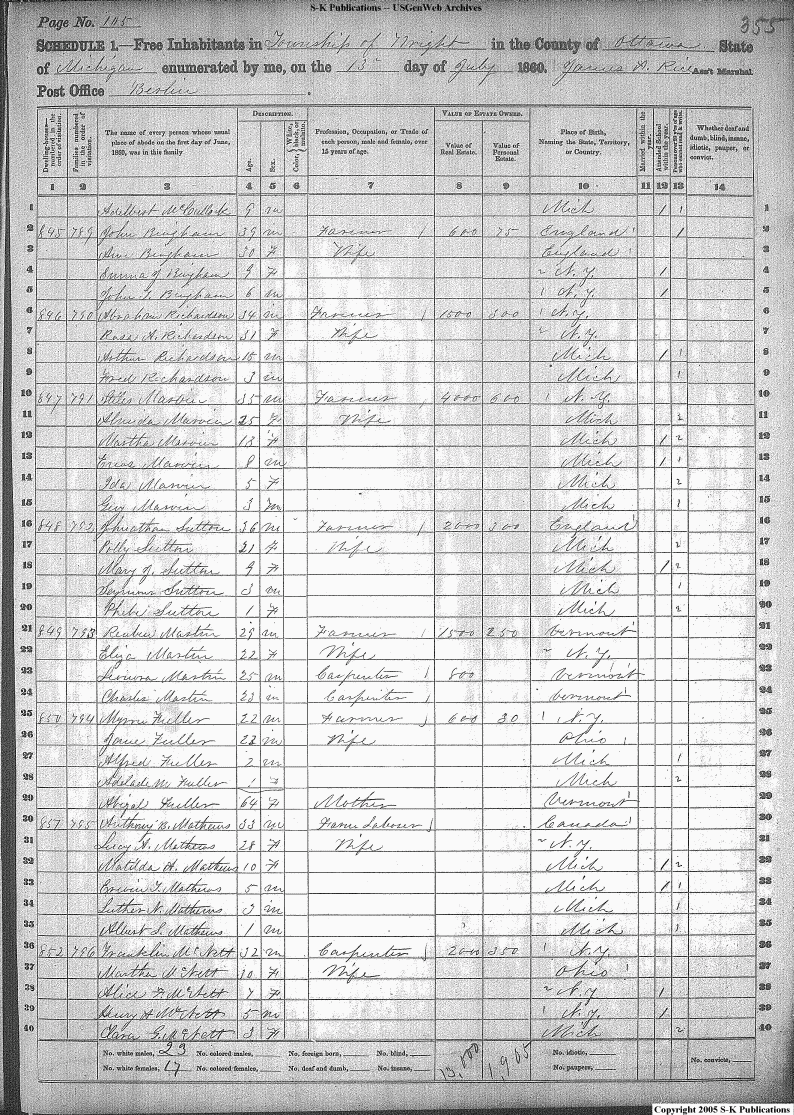 S-K Publications -- USGenWeb Archives
Page No. 105
355
SCHEDULE 1.—Free Inhabitants in Township of Wright in the County of Ottawa State
of Michigan enumerated by me, on the 13 day of July 1860. James A. Rice Ass't Marshal
Post Office Berlin
Dwelling-houses—numbered in the order of visitation.
Families numbered in the order of visitation.
The name of every person whose usual place of abode on the first day of June, 1860, was in this family.
DESCRIPTION.
Age.
Sex.
Color, White, black, or mulatto.
Profession, Occupation, or Trade of each person, male and female, over 15 years of age.
VALUE OF ESTATE OWNED.
Value of Real Estate.
Value of Personal Estate.
Place of Birth, Naming the State, Territory, or Country.
Married within the year.
Attended School within the year.
Whether deaf and dumb, blind, insane, idiotic, pauper, or convict.
1 2 3 4 5 6 7 8 9 10 11 12 13 14
1 Adelbert McCulloch 9 m Mich / 1 1
2 845 789 John Bingham 39 m Farmer 600 75 England 1 2
3 Ann Bingham 30 F Wife England 3
4 Emma J Bingham 9 F N.Y. / 4
5 John T. Bingham 6 m N.Y. / 5
6 846 790 Abraham Richardson 34 m Farmer 1500 300 N.Y. 6
7 Rosa A. Richardson 31 F Wife N.Y. 7
8 Arthur Richardson 15 m Mich / 1 8
9 Fred Richardson 3 m Mich 1 9
10 847 791 Marvin 35 m Farmer 4000 600 N.Y. 10
11 Almeda Marvin 25 F Wife Mich 2 11
12 Martha Marvin 13 F Mich / 2 12
13 Marvin 8 m Mich / 1 13
14 Ida Marvin 5 F Mich 2 14
15 Guy Marvin 3 m Mich 1 15
16 848 792 Sutton 36 m Farmer 2000 300 England 16
17 Polly Sutton 21 F Wife Mich 2 17
18 Mary J. Sutton 9 F Mich / 2 18
19 Seymour Sutton 3 m Mich 1 19
20 Phebe Sutton 1 F Mich 2 20
21 849 793 Reuben Mastin 29 m Farmer 1500 250 Vermont 21
22 Eliza Mastin 22 F Wife N.Y. 22
23 Mastin 25 m Carpenter 800 Vermont 23
24 Charles Mastin 23 m Carpenter Vermont 24
25 850 794 Myron Fuller 22 m Farmer 600 30 N.Y. 25
26 Jane Fuller 23 m Wife Ohio 26
27 Alfred Fuller 2 m Mich 1 27
28 Adelade M. Fuller 1 F Mich 2 28
29 Abigal Fuller 64 F Mother Vermont 29
30 851 795 Anthony B. Mathews 33 m Farm Labour Canada 30
31 Lucy A. Mathews 28 F Wife N.Y. 31
32 Matilda A. Mathews 10 F Mich / 2 32
33 Erwin T. Mathews 5 m Mich / 1 33
34 Luther N. Mathews 3 m Mich 1 34
35 Albert S. Mathews 1 m Mich 1 35
36 852 796 Franklin McNett 32 m Carpenter 2000 350 N.Y. 36
37 Martha McNett 30 F Wife Ohio 37
38 Alice F. McNett 7 F N.Y / 38
39 Henry A McNett 5 m N.Y. / 39
40 Clara G. McNett 3 F Mich 2 40
No. white males, 23 No. colored males, No. foreign born, No. blind, No. idiotic,
No. white females, 17 No. colored females, No. deaf and dumb, No. insane, 13,000 1,965 No. paupers, No. convicts,
Copyright 2005 S-K Publications